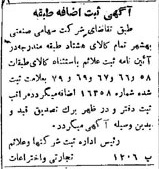 آگهی ثبت اضافه طبقه
طبق تقاضای شرکت سهامی صنعتی
بهشهر تمام کالای هشتاد طبقه مندرجه در
آئین نامه ثبت علائم باستثناء کالای طبقات
۵۸ و ۶۶ و ۶۷ و ۶۹ و ۷۹ بعلامت ثبت
شده شماره ۱۶۳۵۸ اضافه میگردد مراتب
ثبت دفتر و در ظهر برگ تصدیق قید و
بدین وسیله آگهی میگردد.
رئیس اداره ثبت شرکتها وعلائم
تجارتی واختراعات
ب ۱۲۰۶